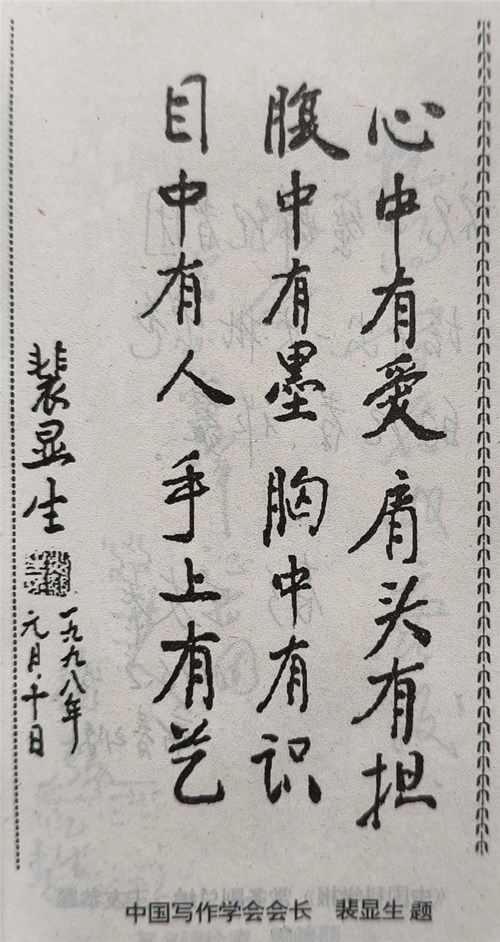 心中有爱 肩头有担
腹中有墨 胸中有识
目中有人 手上有艺
裴显生
一九九八年
元月十日
中国写作学会会长 裴显生 题